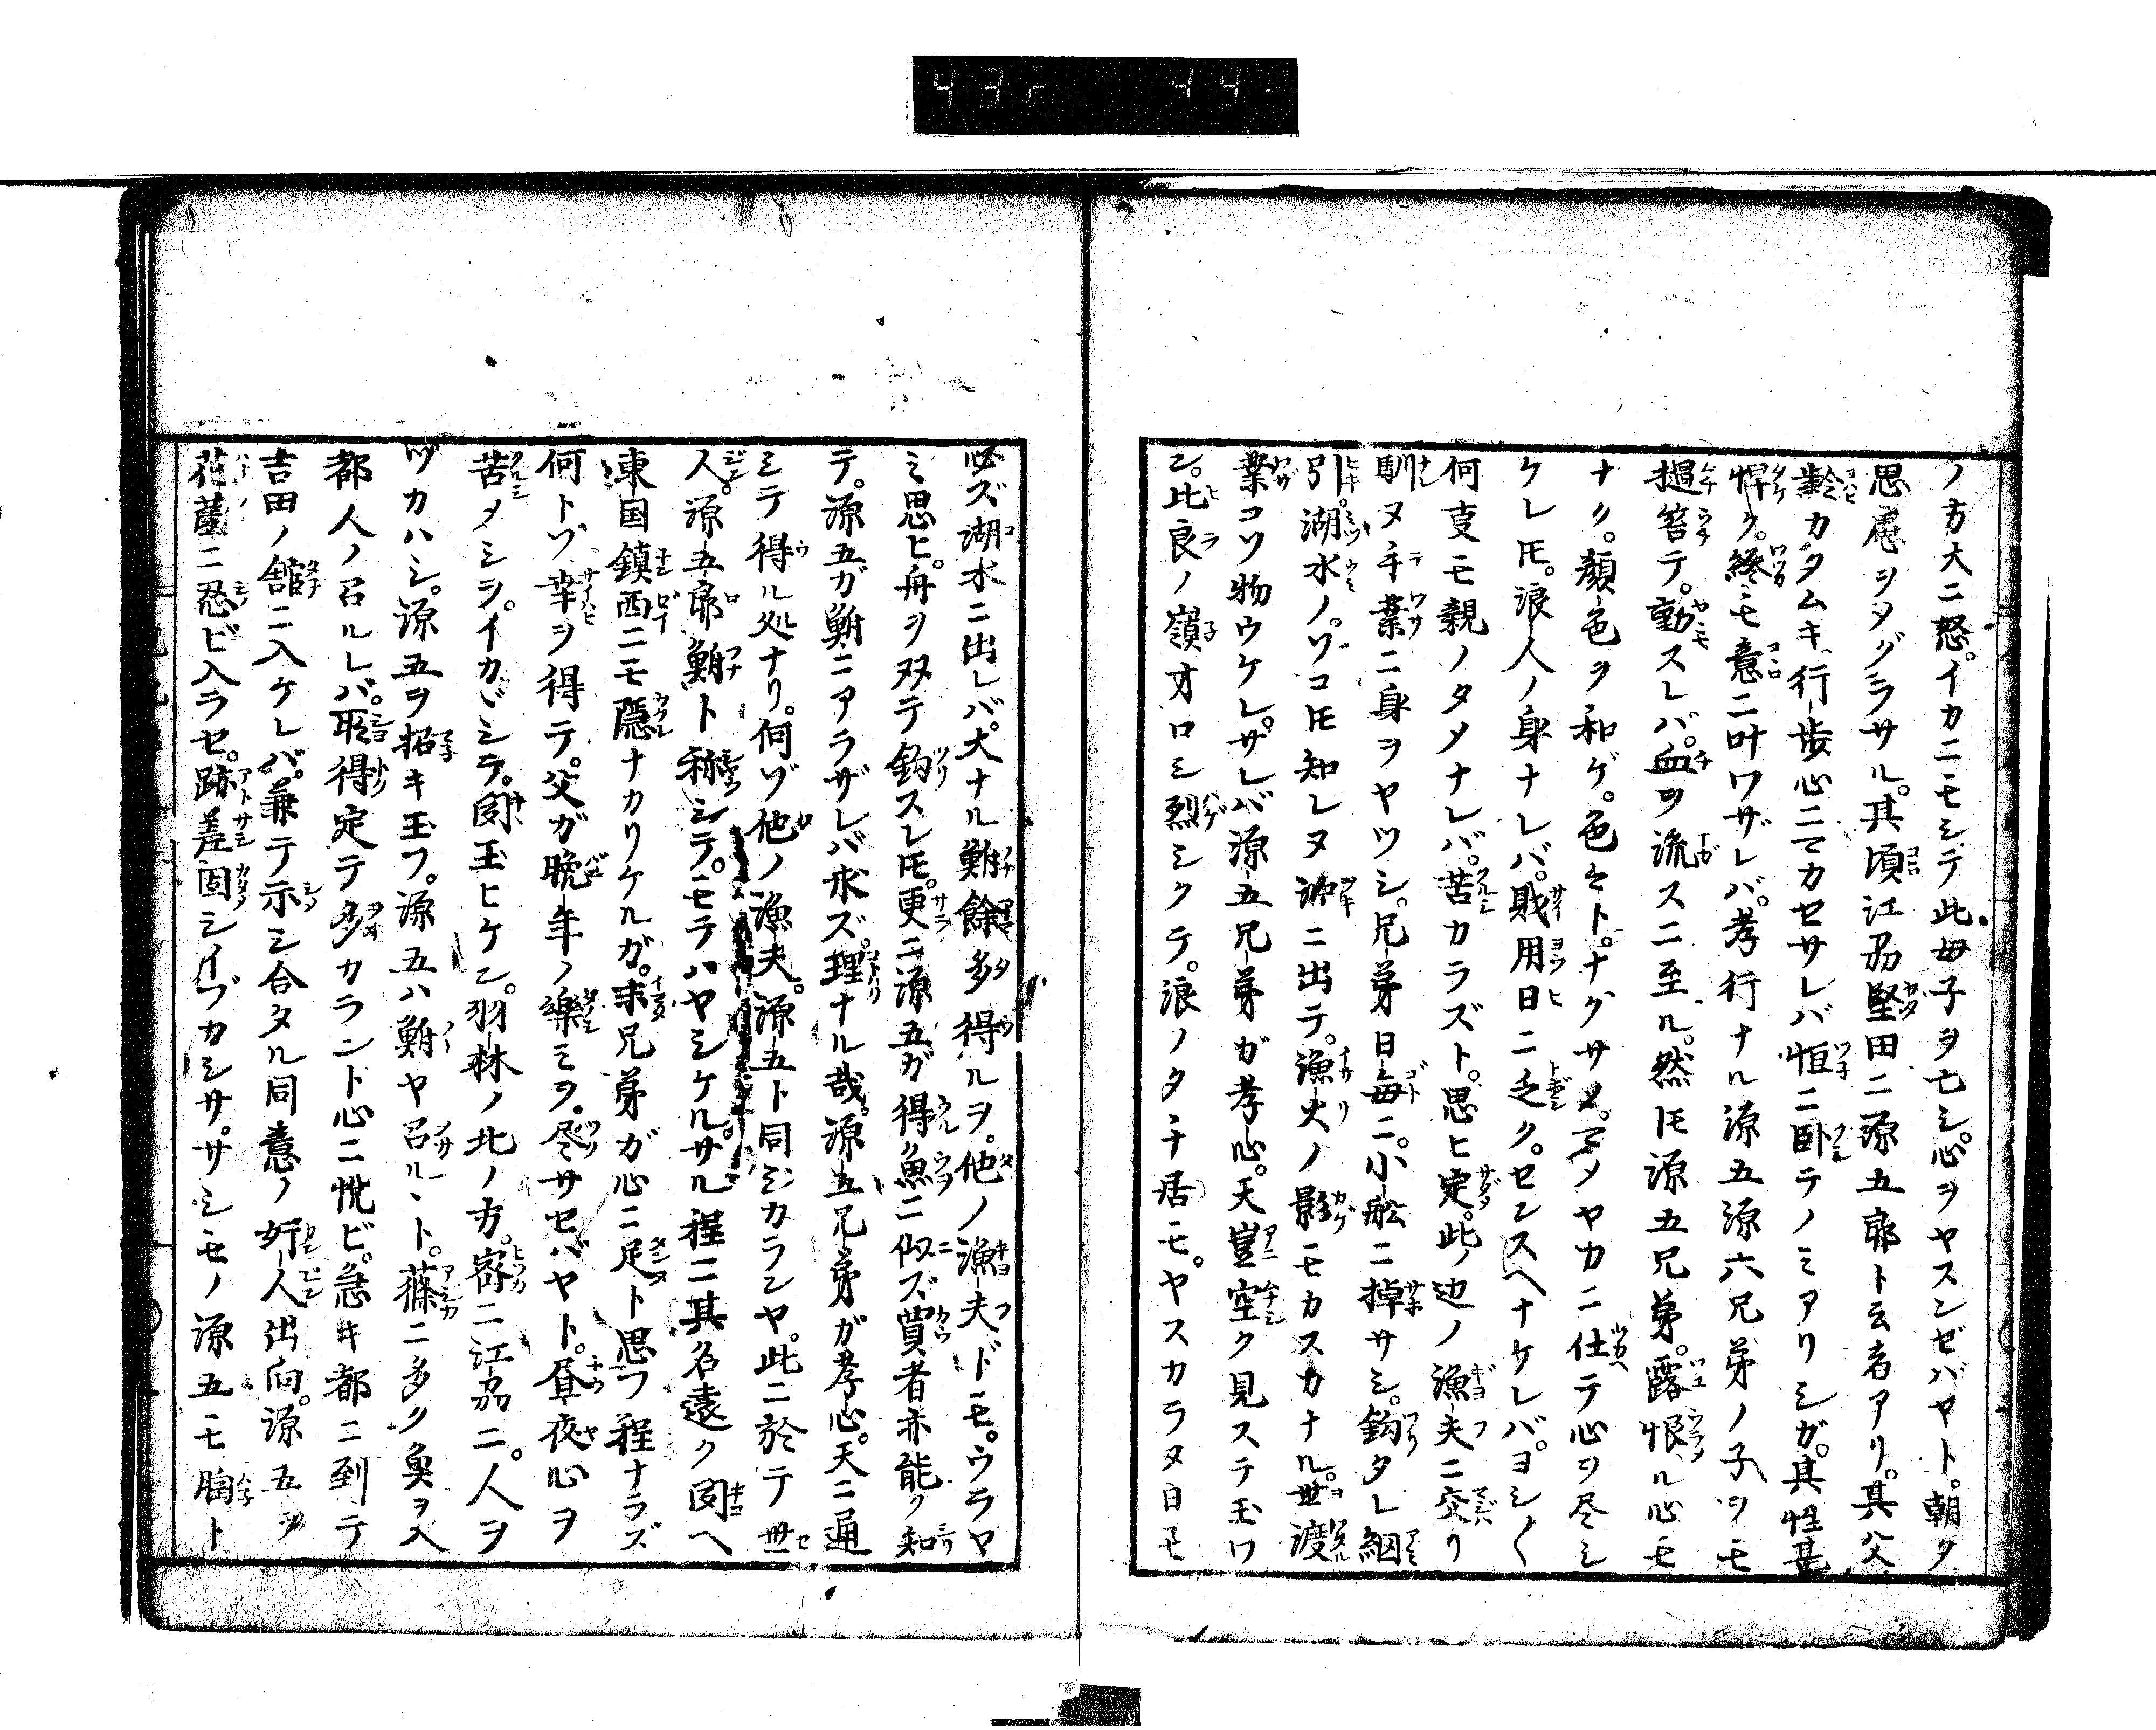 ノ方大ニ怒。イカニモシテ此母子ヲ亡シ。心ヲヤスンゼバヤト。朝夕
思慮ヲメグラサル。其頃江刕堅田ニ源五郎ト云者アリ。其父
齢カタムキ。行歩心ニマカセサレバ恒ニ臥テノミアリシガ。其性甚
悍ク。纔モ意ニ叶ワザレバ。孝行ナル源五源六兄弟ノ子ヲモ
撾笞テ。動スレバ。血ヲ流スニ至ル。然ドモ源五兄弟。露恨ル心モ
ナク。顔色ヲ和ゲ。色々ト。ナグサメ。マメヤカニ仕テ心ヲ尽シ
ケレドモ。浪人ノ身ナレバ。貲用日ニ乏ク。センスヘナケレバ。ヨシ〱
何事モ親ノタメナレバ。苦カラズト。思ヒ定。此ノ辺ノ漁夫ニ交リ
馴ヌ手業ニ身ヲヤツシ。兄弟日毎ニ。小舩ニ掉サシ。釣タレ網
引。湖水ノ。ソコトモ知レヌ沖ニ出テ。漁火ノ影モカスカナル。世渡
業コソ物ウケレ。サレバ源五兄弟ガ孝心。天豈空ク見ステ玉ワ
ン。比良ノ嶺オロシ烈シクテ。浪ノタチ居モ。ヤスカラヌ日モ
必ズ湖水ニ出レバ。大ナル鮒餘多得ルヲ。他ノ漁夫ドモ。ウラヤ
ミ思ヒ。舟ヲ双テ釣スレドモ。更ニ源五ガ得魚ニ似ズ買者亦能ク知
テ。源五ガ鮒ニアラザレバ求ズ。理ナル哉。源五兄弟ガ孝心。天ニ通
シテ得ル処ナリ。何ゾ他ノ漁夫。源五ト同ジカランヤ。此ニ於テ世
人。源五郎鮒ト称シテ。モテハヤシケル。サル程ニ其名遠ク聞ヘ
東国鎮西ニモ隠ナカリケルガ。未兄弟ガ心ニ足ト思フ程ナラズ
何トゾ幸ヲ得テ。父ガ晩年ノ樂ミヲ。尽サセバヤト。昼夜心ヲ
苦メシヲ。イカヾシテ。聞玉ヒケン。羽林ノ北ノ方。密ニ江刕ニ。人ヲ
ツカハシ。源五ヲ招キ玉フ。源五ハ鮒ヤ召ルヽト。蓧ニ多ク魚ヲ入
都人ノ召ルレバ。所得定テ多カラント心ニ悦ビ。急キ都ニ到テ
吉田ノ舘ニ入ケレバ。兼テ示シ合タル同意ノ奸人出向。源五ヲ
花薗ニ忍ビ入ラセ。跡差固シイブカシサ。サシモノ源五モ胸ト